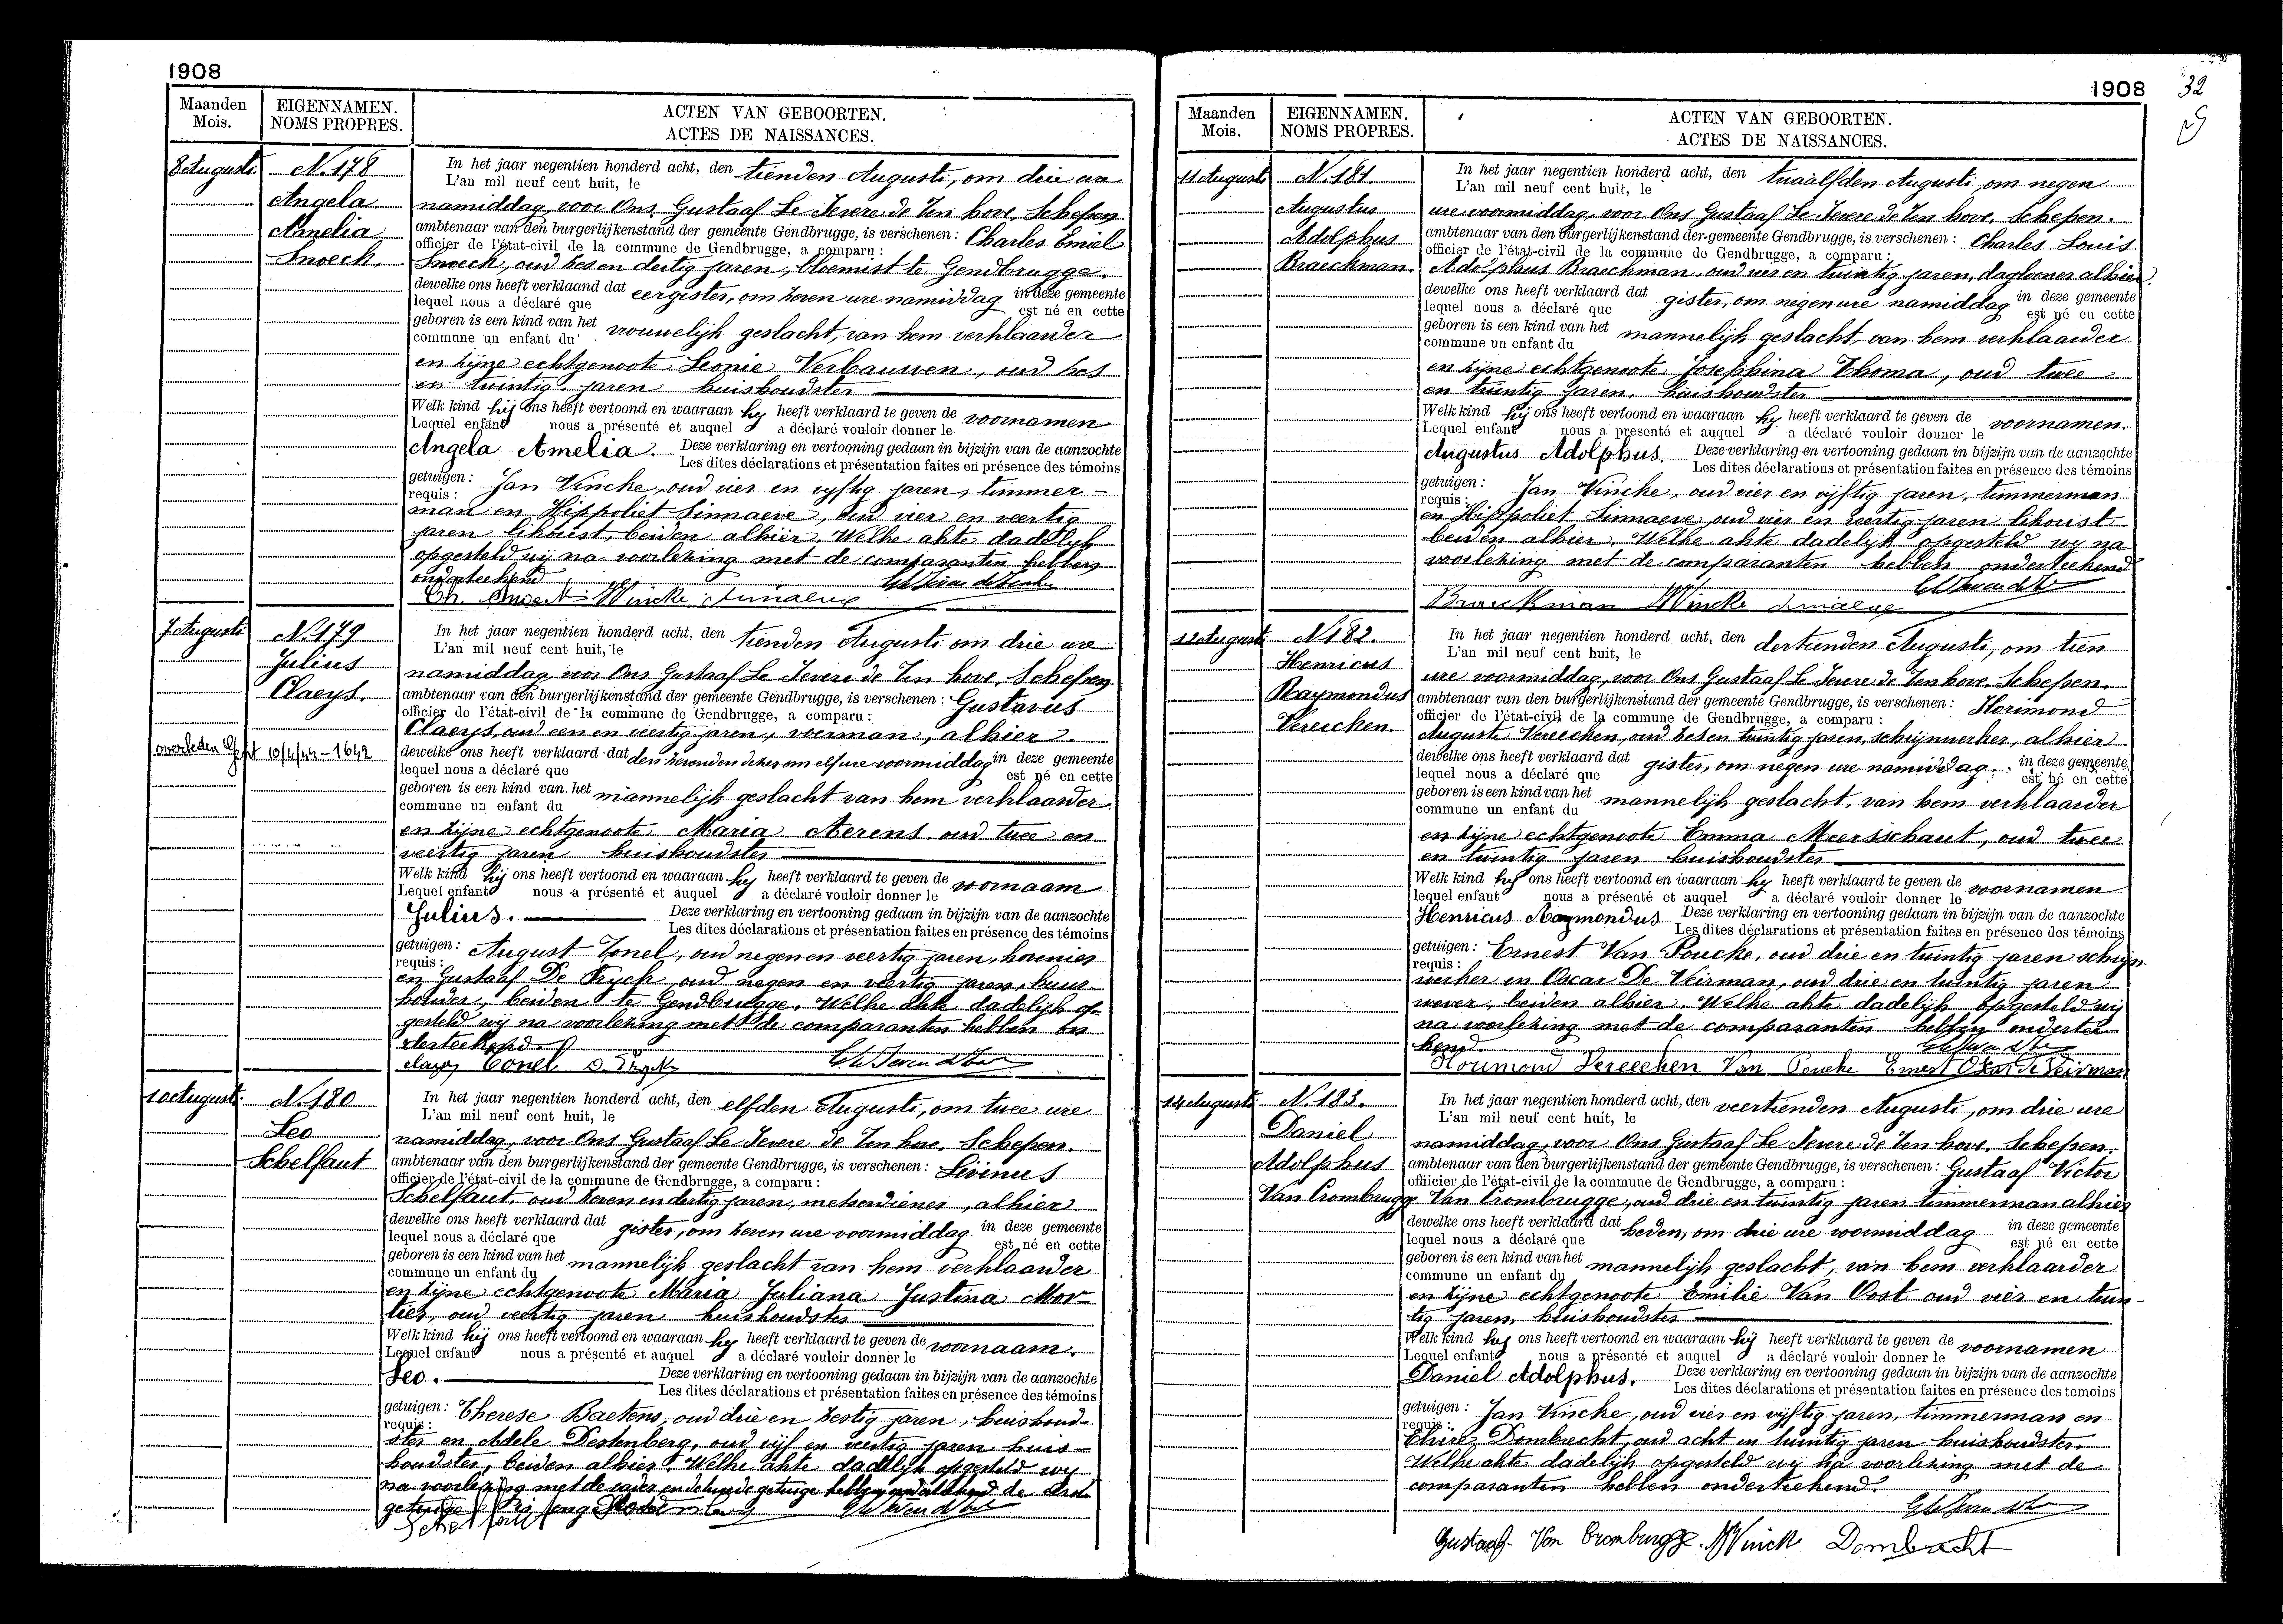 1908
Maanden
Mois.
EIGENNAMEN.
NOMS PROPRES.
ACTEN VAN GEBOORTEN.
ACTES DE NAISSANCES.
8 Augusti
N. 178
Angela
Amelia
Snoeck.
In het jaar negentien honderd acht, den tienden Augusti, om drie
L'an mil neuf cent huit, le
namiddag, voor Ons, Gustaaf Le Jeune de Ten hove, Schepen
ambtenaar van den burgerlijkenstand der gemeente Gendbrugge, is verschenen : Charles Emiel
officier de l'état-civil de la commune de Gendbrugge, a comparu :
Snoeck, oud zes en dertig jaren, bloemist te Gendbrugge.
dewelke ons heeft verklaard dat eergister, om zeven ure namiddag in deze gemeente
lequel nous a déclaré que est né en cette
geboren is een kind van het vrouwelijk geslacht, van hem verklaarder
commune un enfant du
en zijne echtgenoote Leonie Verbauwen, oud zes
en twintig jaren huishoudster
Welk kind hij ons heeft vertoond en waaraan hy heeft verklaard te geven de voornamen
Lequel enfant nous a présenté et auquel a déclaré vouloir donner le
Angela Amelia. Deze verklaring en vertooning gedaan in bijzijn van de aanzochte
Les dites déclarations et présentation faites en présence des témoins
getuigen : Jan Vincke, oud vier en vyftig jaren, timmer-
requis :
man en Hippoliet Sinnaeve, oud vier en veertig
jaren, beiden alhier. Welke akte dadelijk
opgesteld wij na voorlezing met de comparanten hebben
onderteekend
Vincke Sinnaeve
7 Augusti
N. 179
Julius
Claeys.
overleden Gent 10/4/44 - 1642
In het jaar negentien honderd acht, den tienden Augusti om drie ure
L'an mil neuf cent huit, le
namiddag, voor Ons Gustaaf Le Jeune de Ten hove, Schepen
ambtenaar van den burgerlijkenstand der gemeente Gendbrugge, is verschenen : Gustavus
officier de l'état-civil de la commune de Gendbrugge, a comparu :
Claeys, oud een en veertig jaren, voerman, alhier.
dewelke ons heeft verklaard dat den zevenden dezer om elf ure voormiddag in deze gemeente
lequel nous a déclaré que est né en cette
geboren is een kind van het mannelijk geslacht van hem verklaarder
commune un enfant du
en zijne echtgenoote Maria Aerens oud twee en
veertig jaren huishoudster
Welk kind hij ons heeft vertoond en waaraan hy heeft verklaard te geven de voornaam
Lequel enfant nous a présenté et auquel a déclaré vouloir donner le
Julius. Deze verklaring en vertooning gedaan in bijzijn van de aanzochte
Les dites déclarations et présentation faites en présence des témoins
getuigen : August Tonel, oud negen en veertig jaren, hovenier
requis :
en Gustaaf De Pryck, oud negen en veertig jaren, huis-
houder, beiden te Gendbrugge. Welke akte dadelijk op-
gesteld wij na voorlezing met de comparanten hebben on
derteekend
Claeys Tonel
10 Augusti
N. 180
Leo
Schelfaut
In het jaar negentien honderd acht, den elfden Augusti, om twee ure
L'an mil neuf cent huit, le
namiddag, voor Ons Gustaaf Le Jeune de Ten hove, Schepen.
ambtenaar van den burgerlijkenstand der gemeente Gendbrugge, is verschenen : Livinus
officier de l'état-civil de la commune de Gendbrugge, a comparu :
Schelfaut, oud zeven en dertig jaren, metserdiener, alhier
dewelke ons heeft verklaard dat gister, om zeven ure voormiddag in deze gemeente
lequel nous a déclaré que est né en cette
geboren is een kind van het mannelijk geslacht van hem verklaarder
commune un enfant du
en zijne echtgenoote Maria Juliana Justina Mor-
tier, oud veertig jaren huishoudster
Welk kind hij ons heeft vertoond en waaraan hy heeft verklaard te geven de voornaam.
Lequel enfant nous a présenté et auquel a déclaré vouloir donner le
Leo. Deze verklaring en vertooning gedaan in bijzijn van de aanzochte
Les dites déclarations et présentation faites en présence des témoins
getuigen : Therese Baetens, oud drie en zestig jaren, huishoud-
requis :
ster en Adele Destenberg, oud vijf en veertig jaren huis-
houdster, beiden alhier. Welke akte dadelijk opgesteld wy
na voorlezing met de vader en de tweede getuige hebben onderteekend de
getuige
Schelfaut
1908
32
Maanden
Mois.
EIGENNAMEN.
NOMS PROPRES.
ACTEN VAN GEBOORTEN.
ACTES DE NAISSANCES.
11 Augusti
N. 181.
Augustus
Adolphus
Braeckman.
In het jaar negentien honderd acht, den twaalfden Augusti, om negen
L'an mil neuf cent huit, le
ure voormiddag, voor Ons Gustaaf Le Jeune de Ten hove, Schepen.
ambtenaar van den burgerlijkenstand der gemeente Gendbrugge, is verschenen : Charles Louis
officier de l'état-civil de la commune de Gendbrugge, a comparu :
Adolphus Braeckman, oud vier en twintig jaren, daglooner alhier.
dewelke ons heeft verklaard dat gister, om negen ure namiddag in deze gemeente
lequel nous a déclaré que est né en cette
geboren is een kind van het mannelijk geslacht, van hem verklaarder
commune un enfant du
en zijne echtgenoote Josephina Thoma, oud twee
en twintig jaren, huishoudster
Welk kind hij ons heeft vertoond en waaraan hy heeft verklaard te geven de voornamen.
Lequel enfant nous a présenté et auquel a déclaré vouloir donner le
Augustus Adolphus. Deze verklaring en vertooning gedaan in bijzijn van de aanzochte
Les dites déclarations et présentation faites en présence des témoins
getuigen : Jan Vincke, oud vier en vijftig jaren, timmerman
requis :
en Hippoliet Sinnaeve, oud vier en veertig jaren
beiden alhier. Welke akte dadelijk opgesteld wy na
voorlezing met de comparanten hebben onderteekend
Braeckman Vincke Sinnaeve
12 Augusti
N. 182.
Henricus
Raymondus
Vereecken.
In het jaar negentien honderd acht, den dertienden Augusti, om tien
L'an mil neuf cent huit, le
ure voormiddag, voor Ons Gustaaf Le Jeune de Ten hove, Schepen.
ambtenaar van den burgerlijkenstand der gemeente Gendbrugge, is verschenen : Florimond
officier de l'état-civil de la commune de Gendbrugge, a comparu :
Auguste Vereecken, oud zes en twintig jaren, schrijnwerker, alhier
dewelke ons heeft verklaard dat gister, om negen ure namiddag in deze gemeente
lequel nous a déclaré que est né en cette
geboren is een kind van het mannelijk geslacht, van hem verklaarder
commune un enfant du
en zijne echtgenoote Emma Meersschaut, oud twee
en twintig jaren huishoudster
Welk kind hij ons heeft vertoond en waaraan hy heeft verklaard te geven de voornamen
lequel enfant nous a présenté et auquel a déclaré vouloir donner le
Henricus Raymondus Deze verklaring en vertooning gedaan in bijzijn van de aanzochte
Les dites déclarations et présentation faites en présence des témoins
getuigen : Ernest Van Poucke, oud drie en twintig jaren schrijn-
requis :
werker en Oscar De Veirman, oud drie en twintig jaren
wever, beiden alhier. Welke akte dadelijk opgesteld wij
na voorlezing met de comparanten hebben ondertee-
kend
Florimond Vereecken Van Poucke Ernest Oscar De Veirman
14 Augusti
N. 183.
Daniel
Adolphus
Van Crombrugge
In het jaar negentien honderd acht, den veertienden Augusti, om drie ure
L'an mil neuf cent huit, le
namiddag, voor Ons Gustaaf Le Jeune de Ten hove, Schepen.
ambtenaar van den burgerlijkenstand der gemeente Gendbrugge, is verschenen : Gustaaf Victor
officier de l'état-civil de la commune de Gendbrugge, a comparu :
Van Crombrugge, oud drie en twintig jaren timmerman alhier
dewelke ons heeft verklaard dat heden, om drie ure voormiddag in deze gemeente
lequel nous a déclaré que est né en cette
geboren is een kind van het mannelijk geslacht, van hem verklaarder
commune un enfant du
en zijne echtgenoote Emilie Van Oost oud vier en twin-
tig jaren, huishoudster
Welk kind hij ons heeft vertoond en waaraan hij heeft verklaard te geven de voornamen
Lequel enfant nous a présenté et auquel a déclaré vouloir donner le
Daniel Adolphus. Deze verklaring en vertooning gedaan in bijzijn van de aanzochte
Les dites déclarations et présentation faites en présence des temoins
getuigen : Jan Vincke, oud vier en vijftig jaren, timmerman en
requis :
Elvire Dombrecht, oud acht en twintig jaren huishoudster.
Welke akte dadelijk opgesteld wij na voorlezing met de
comparanten hebben onderteekend.
Gustaaf Van Crombrugge. Vinck Dombrecht